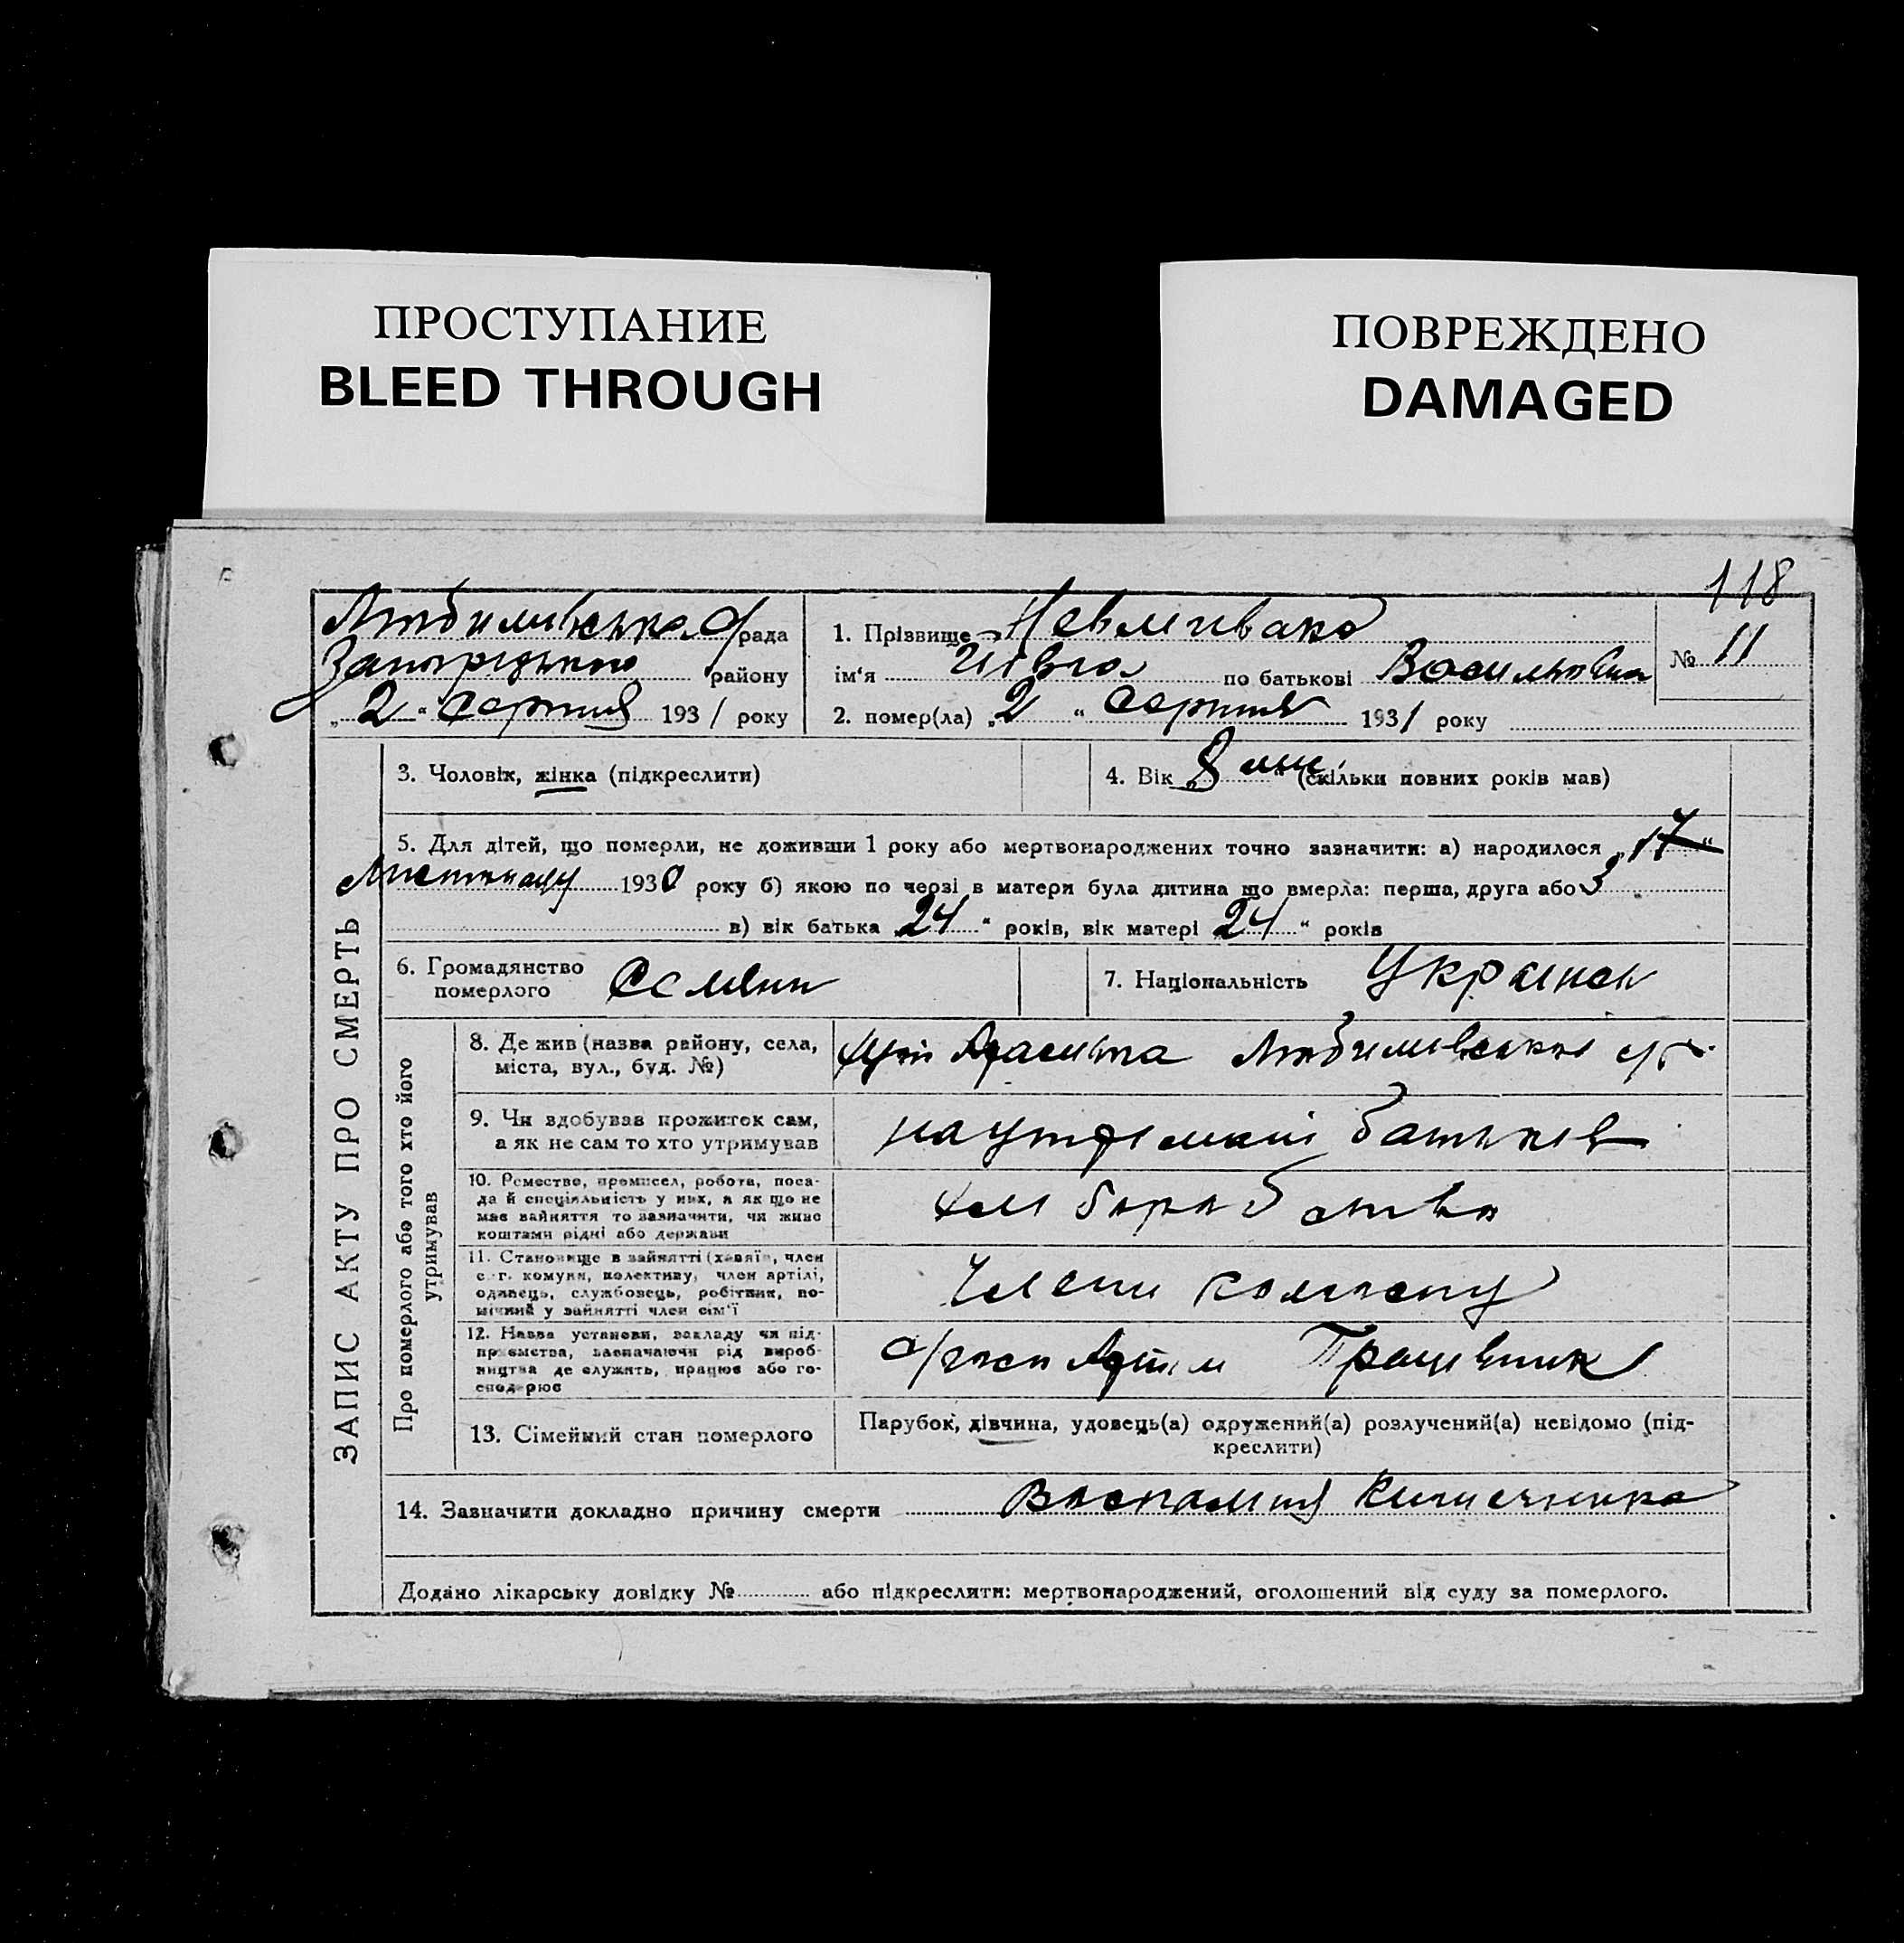 ПРОСТУПАНИЕ
BLEED THROUGH
ПОВРЕЖДЕНО
DAMAGED
118
Любимівська с/рада
Запорізького району
„2“ Серпня 1931 року
1. Прізвище
ім‘я Івга по батькові Василівна
№ 11
2. помер(ла) „2“ Серпня 1931 року
3. Чоловік, жінка (підкреслити)
4. Вік 8 міс. (скільки повних років мав)
5. Для дітей, що померли, не доживши 1 року або мертвонароджених точно зазначити: а) народилося „17“
Листопаду 1930 року б) якою по черзі в матери була дитина що вмерла: перша, друга або 3
в) вік батька „24“ років, вік матері „24“ років
6. Громадянство
померлого
7. Національність Українка
8. Де жив (назва району, села,
міста, вул., буд. №)
Любимівської с/р
9. Чи вдобував прожиток сам,
а як не сам то хто утримував
на утриманні батьків
10. Ремество, промисел, робота, поса-
да й спеціяльність у них, а як що не
має зайняття то зазначити, чи живе
коштами рідні або держави
хліборобство
11. Становище в зайнятті (хазяїн, член
с.-г. комуни, колективу, член артілі,
одинець, службовець, робітник, по-
мічний у зайнятті член сім‘ї
Член колгоспу
12. Назва установи, закладу чи під-
приємства, зазначаючи рід вироб-
ництва де служить, працює або го-
сподарює
с/госп Артіль Працівник
13. Сімейний стан померлого
Парубок, дівчина, удовець(а) одружений(а) розлучений(а) невідомо (під-
креслити)
14. Зазначити докладно причину смерти Воспаления Кишечника
Додано лікарську довідку № або підкреслити: мертвонароджений, оголошений від суду за померлого.
ЗАПИС АКТУ ПРО СМЕРТЬ
Про померлого або того хто його
утримував